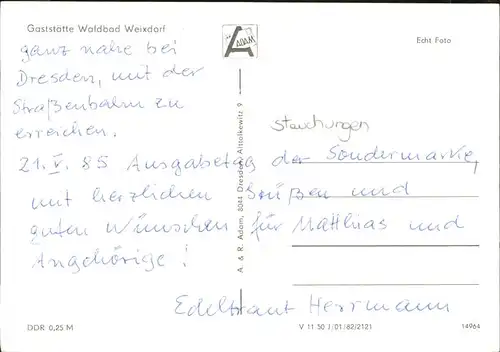 Gaststätte Waldbad Weixdorf
ADAM
Echt Foto
ganz nahe bei
Dresden, mit der
Straßenbahn zu
erreichen.
Stauchungen
21. V. 85 Ausgabetag der Sondermarke,
mit herzlichen Grüßen und
guten Wünschen für Matthias und
Angehörige!
Edeltraut Herrmann
A. & R. Adam, 8044 Dresden, Alttolkewitz 9
DDR 0,25 M
V 11 50 J/01/82/2121
14964